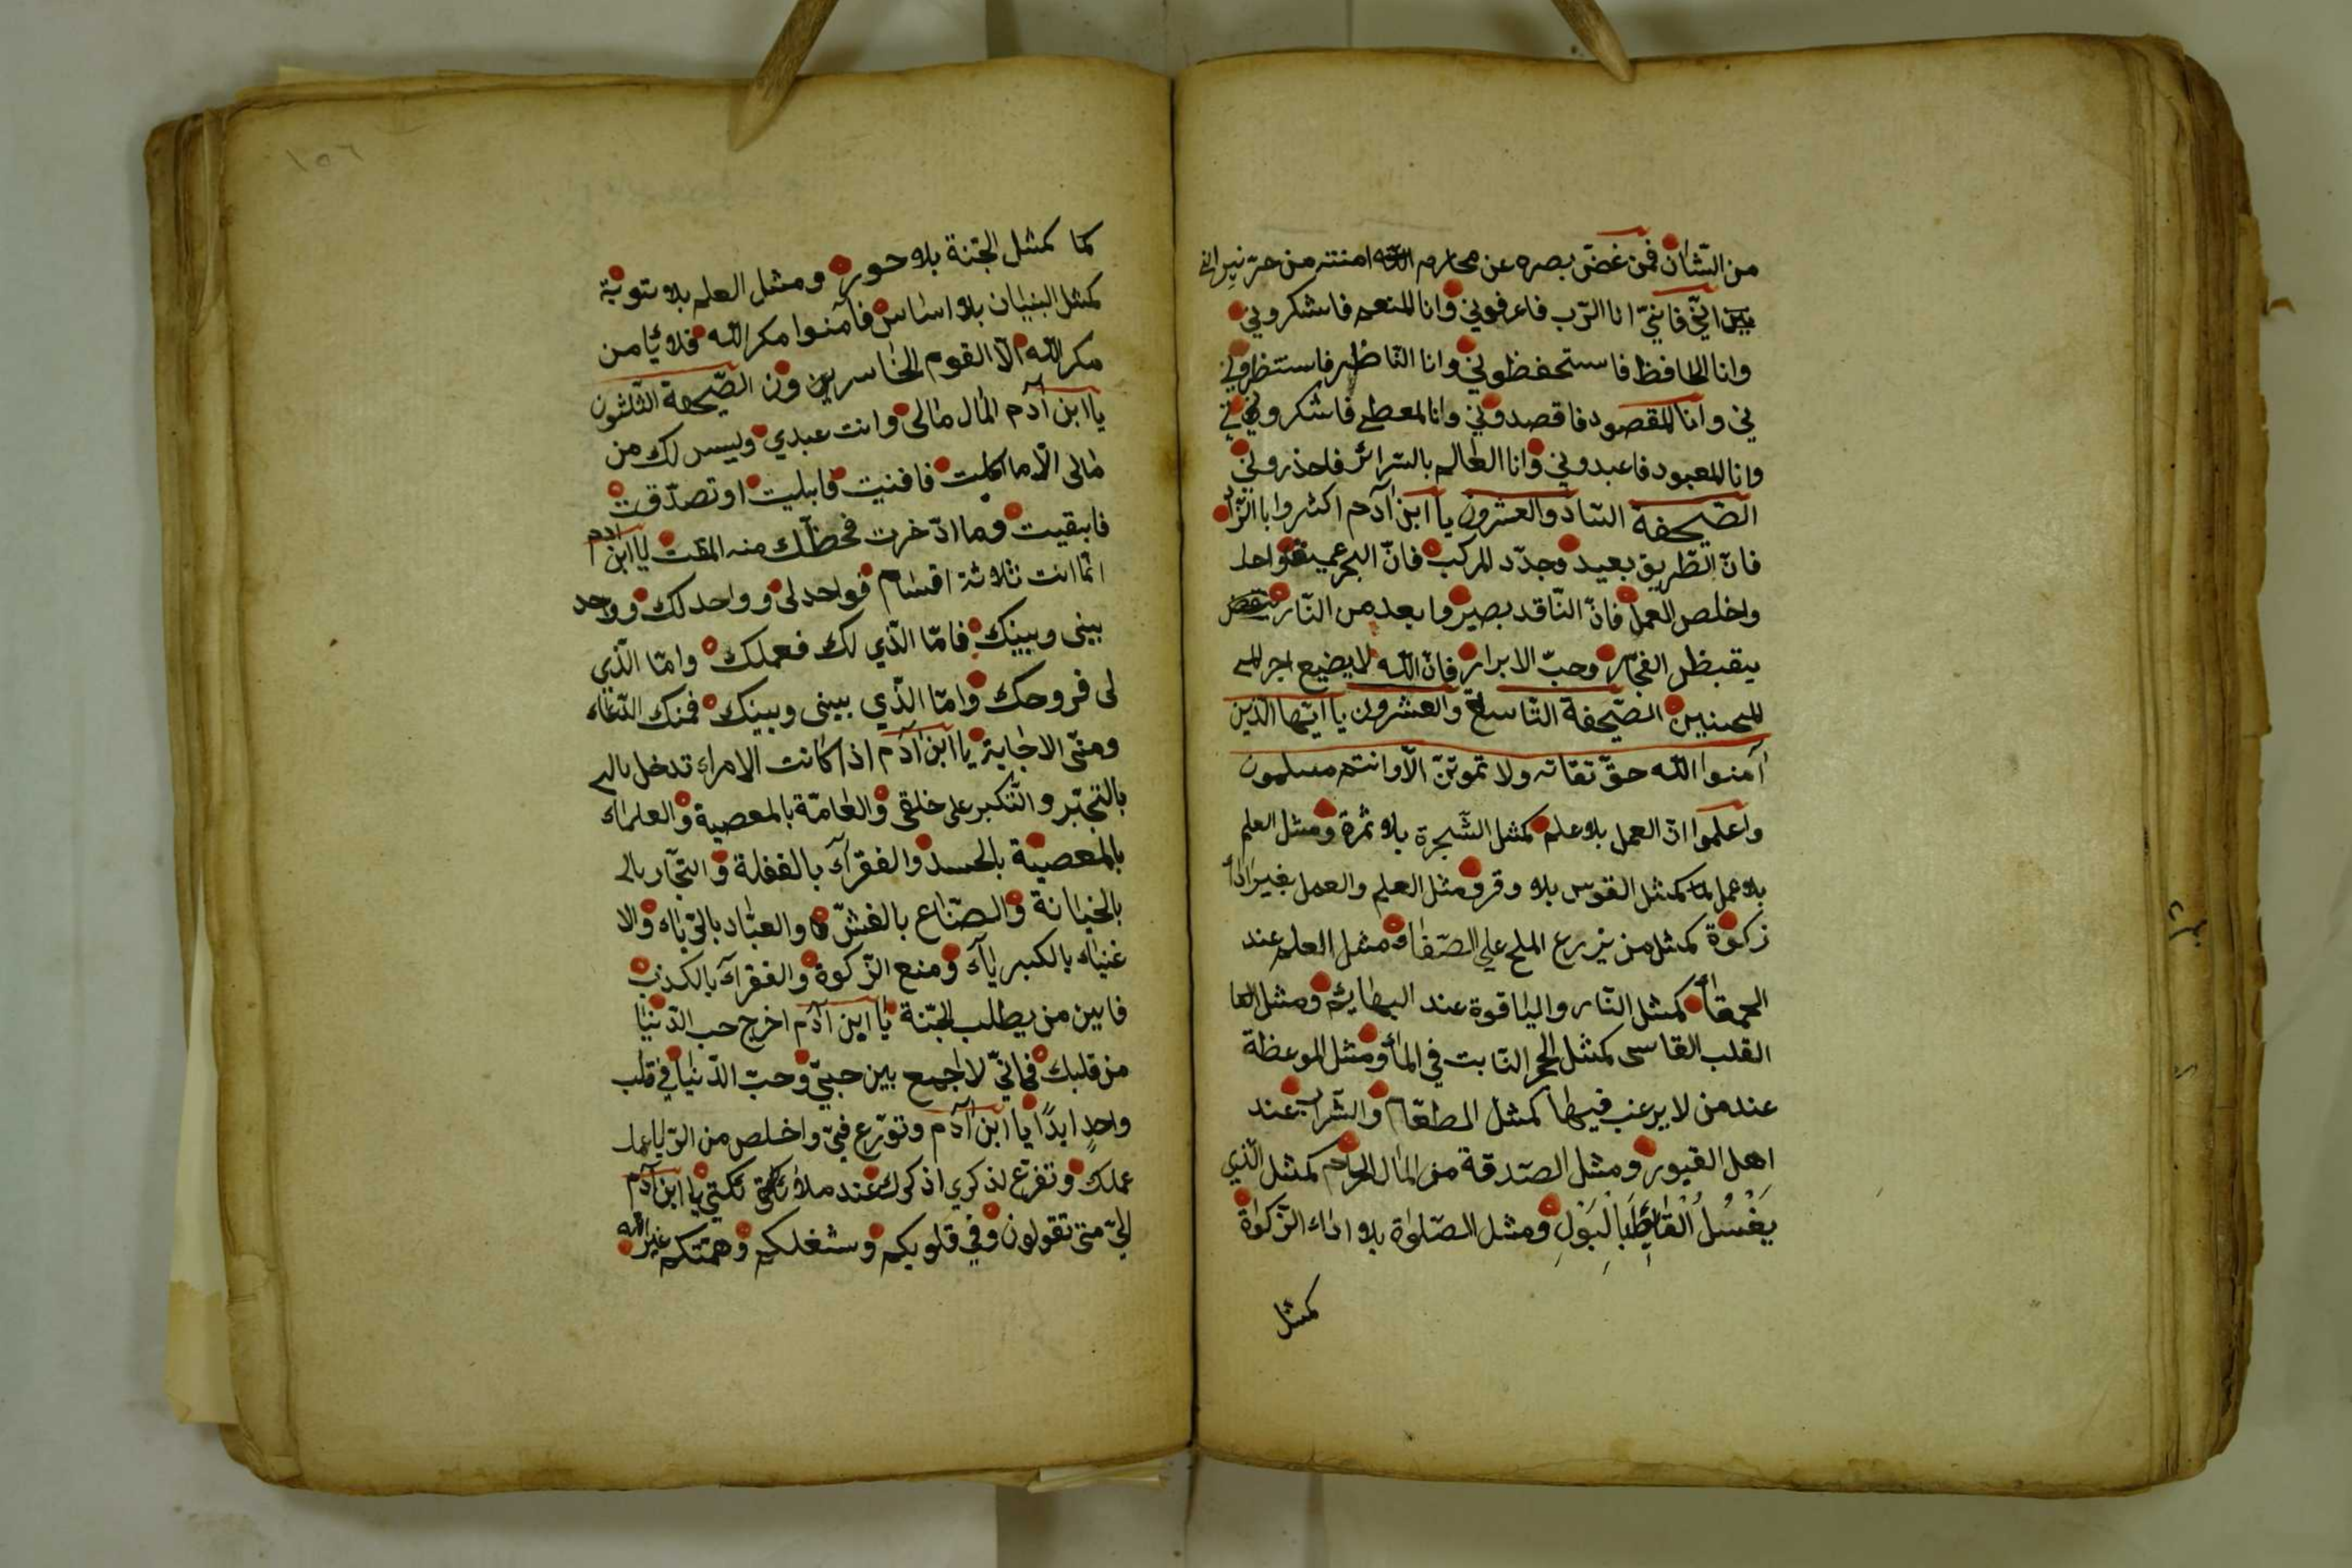 من الشان فمن غضّ بصره عن محارم الله امنته من حرّ نيرانى
انّي فانيّ انا الرّب فاعرفوني وانا المنعم فاشكروني
وانا الحافظ فاستحفظوني وانا النّاظر فاستنظروني
ني وانا المقصود فاقصدوني وانا المعطي فاشكروني
وانا المعبود فاعبدوني وانا العالم بالسّرائر فاحذروني
الصّحيفة والعشرون يا ابن آدم اكثروا
فانّ الطّريق بعيد وجدّد المركب فانّ البحر عميق
واخلص العمل فانّ النّاقد بصير وابعد من النّار
الفجّار وحبّ الابرار فانّ الله لا يضيع اجر
المحسنين الصّحيفة التّاسعة والعشرون يا ايّها الّذين
آمنوا الله حقّ تقاته ولا تموتنّ الّا وانتم مسلمون
واعلموا انّ العمل بلا علم كمثل الشّجرة بلا ثمرة ومثل العلم
بلا عمل كمثل القوس بلا وقر ومثل العلم والعمل بغير
زكوة كمثل من يزرع الملح علي الصّفا ومثل العلم عند
الحمقأ كمثل النّار والياقوة عند البهايم ومثل
القلب القاسى كمثل الحجر الثابت في المأ ومثل الموعظة
عند من لا يرغب فيها كمثل الطعام والشّراب عند
اهل القبور ومثل الصّدقة من المال الحرام كمثل الّذي
يَغْسُلُ الْغَايِطَ بِالْبَوْلِ ومثل الصّلواة بلا اداء الزّكواة
كمثل
كما كمثل الجّنة بلا حور ومثل العلم بلا توبة
كمثل البنيان بلا اساس فآمنوا مكر الله فلا يأمن
مكر الله الّا القوم الخاسرين الصّحيفة الثلثون
يا ابن آدم المال مالى وانت عبدي وليس لك من
مالى الّا ما اكلت فافنيت فابليت او تصدّقت
فابقيت وما ادّخرت فحظّك منه المقت يا ابن ادم
انّما انت ثلاثة اقسام فواحد لى وواحد لك وواحد
بينى وبينك فامّا الّذي لك فعملك وامّا الّذي
لى فروحك وامّا الّذي بينى وبينك فمنك الدّعاء
ومنّى الاجابة يا ابن آدم اذا كانت الامراء تدخل
بالتجبّر والتّكبر على خلقى والعامّة بالمعصية والعلماء
بالمعصية بالحسد والفقرآء بالغفلة والتجّار
بالخيانة والصّنّاع بالغشّ والعبّاد بالرّياء والا
غنياء بالكبرياء ومنع الزّكوة والفقرآء بالكذب
فاين من يطلب الجّنة يا ابن آدم اخرج حب الدّنيا
من قلبك فانيّ لا اجمع بين حبيّ وحبّ الدّنيا في قلب
واحد ابدًا يا ابن آدم وتورّع فيّ واخلص من الرّيا
عملك وتفرّغ لذكري اذكرك عند ملائكتي يا ابن آدم
الىّ متى تقولون وفي قلوبكم وشغلكم وهمتكم غير الله